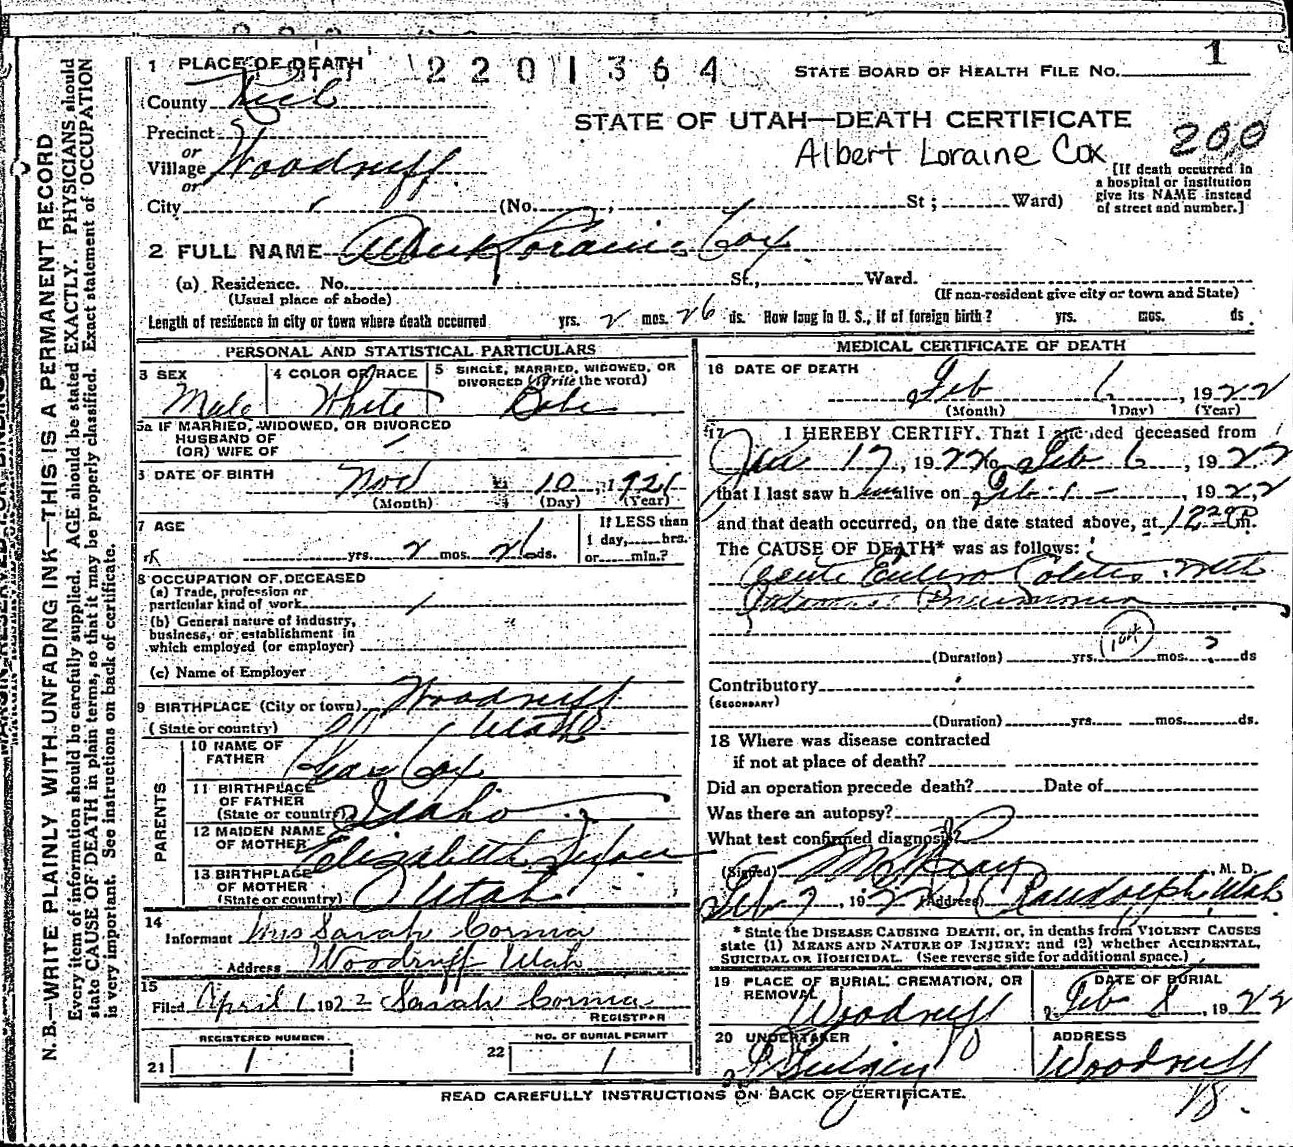 N.B.—WRITE PLAINLY WITH UNFADING INK—THIS IS A PERMANENT RECORD
Every item of information should be carefully supplied. AGE should be stated EXACTLY. PHYSICIANS should
state CAUSE OF DEATH in plain terms, so that it may be properly classified. Exact statement of OCCUPATION
is very important. See instructions on back of certificate.
2201364
STATE BOARD OF HEALTH FILE No. 1
STATE OF UTAH—DEATH CERTIFICATE
Albert Loraine Cox
200
[If death occurred in
a hospital or institution
give its NAME instead
of street and number.]
1 PLACE OF DEATH
County Rich
Precinct
or
Village Woodruff
or
City (No. St; Ward)
2 FULL NAME Albert Loraine Cox
(a) Residence. No. St., Ward.
(Usual place of abode) (If non-resident give city or town and State)
Length of residence in city or town where death occurred yrs. 2 mos. 26 ds. How long in U. S., if of foreign birth? yrs. mos. ds.
PERSONAL AND STATISTICAL PARTICULARS
3 SEX
Male
4 COLOR OR RACE
White
5 SINGLE, MARRIED, WIDOWED, OR
DIVORCED (Write the word)
Babe
5a IF MARRIED, WIDOWED, OR DIVORCED
HUSBAND OF
(OR) WIFE OF
6 DATE OF BIRTH Nov 10, 1921
(Month) (Day) (Year)
7 AGE
yrs. 2 mos. 26 ds.
If LESS than
1 day, hrs.
or min.?
8 OCCUPATION OF DECEASED
(a) Trade, profession or
particular kind of work
(b) General nature of industry,
business, or establishment in
which employed (or employer)
(c) Name of Employer
9 BIRTHPLACE (City or town) Woodruff
(State or country) Utah
PARENTS
10 NAME OF
FATHER Cox
11 BIRTHPLACE
OF FATHER
(State or country) Idaho
12 MAIDEN NAME
OF MOTHER Elizabeth
13 BIRTHPLACE
OF MOTHER
(State or country) Utah
14
Informant Mrs Sarah Cornia
Address Woodruff Utah
15
Filed April 1 1922 Sarah Cornia
REGISTRAR
21 REGISTERED NUMBER
1
22 NO. OF BURIAL PERMIT
1
MEDICAL CERTIFICATE OF DEATH
16 DATE OF DEATH
Feb 6, 1922
(Month) (Day) (Year)
17 I HEREBY CERTIFY, That I attended deceased from
Jan 17, 1922 to Feb 6, 1922
that I last saw him alive on Feb , 1922
and that death occurred, on the date stated above, at 12 P.m.
The CAUSE OF DEATH* was as follows:
Acute Entero Colitis with
Pneumonia
(Duration) yrs. mos. ds
Contributory
(SECONDARY)
(Duration) yrs. mos. ds.
18 Where was disease contracted
if not at place of death?
Did an operation precede death? Date of
Was there an autopsy?
What test confirmed diagnosis?
(Signed) M. D.
Feb 7, 1922 (Address) Randolph Utah
* State the DISEASE CAUSING DEATH, or, in deaths from VIOLENT CAUSES
state (1) MEANS AND NATURE OF INJURY; and (2) whether ACCIDENTAL,
SUICIDAL OR HOMICIDAL. (See reverse side for additional space.)
19 PLACE OF BURIAL, CREMATION, OR
REMOVAL
Woodruff
DATE OF BURIAL
Feb 8, 1922
20 UNDERTAKER
ADDRESS
Woodruff
READ CAREFULLY INSTRUCTIONS ON BACK OF CERTIFICATE.